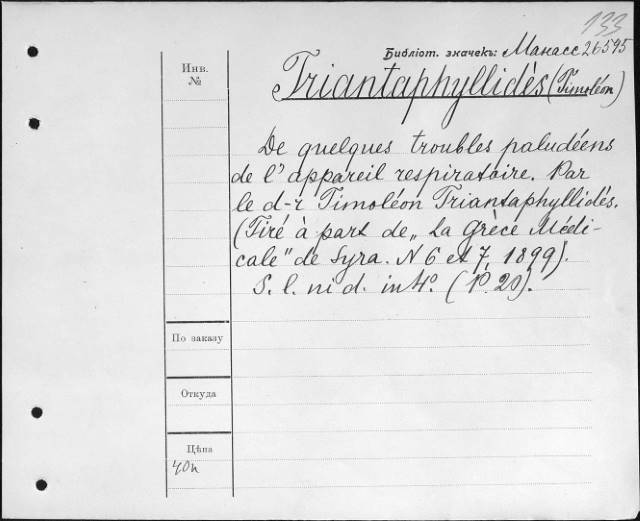 133
Библіот. значекъ: Манасс 26595
Инв.
№
Triantaphyllidès (Timoléon)
De quelques troubles paludéens
de l'appareil respiratoire. Par
le d-r Timoléon Triantaphyllidès.
(Tiré à part de „La Grèce Médi-
cale" de Syra. N 6 et 7, 1899).
S. l. ni d. in 4º. (P. 20).
По заказу
Откуда
Цѣна
40к